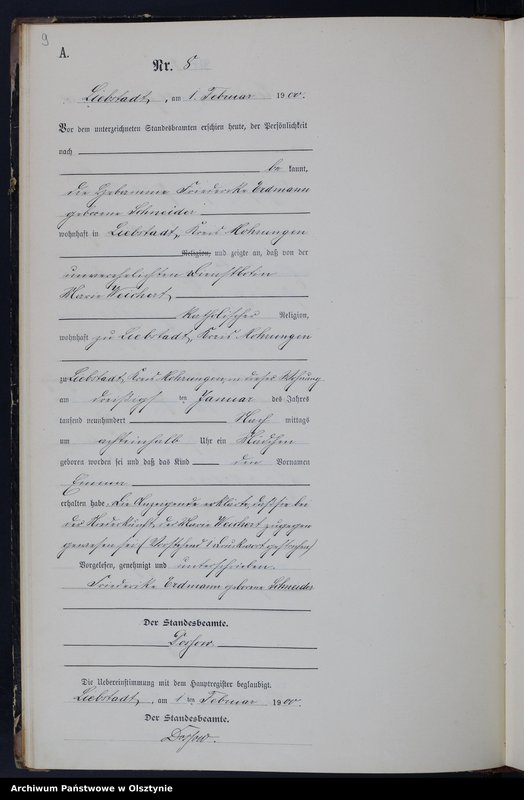 9
A.
Nr. 8
Liebstadt, am 1. Februar 1900.
Vor dem unterzeichneten Standesbeamten erschien heute, der Persönlichkeit
nach
be kannt,
die Hebamme Friederike Erdmann
geborene Schneider
wohnhaft in Liebstadt, Kreis Mohrungen
Religion, und zeigte an, daß von der
unverehelichten Dienstboten
Marie Weichert,
katholischer Religion,
wohnhaft zu Liebstadt, Kreis Mohrungen
zu Liebstadt, Kreis Mohrungen, in dieser Wohnung
am ten Januar des Jahres
tausend neunhundert Nach mittags
um achteinhalb Uhr ein Mädchen
geboren worden sei und daß das Kind den Vornamen
erhalten habe. Die Anzeigende erklärte, daß sie bei
der Niederkunft der Marie Weichert zugegen
gewesen sei. Vorstehend 1 Druckwort gestrichen
Vorgelesen, genehmigt und unterschrieben.
Friederike Erdmann geborene Schneider
Der Standesbeamte.
Die Uebereinstimmung mit dem Hauptregister beglaubigt.
Liebstadt, am 1 ten Februar 1900.
Der Standesbeamte.
Archiwum Państwowe w Olsztynie